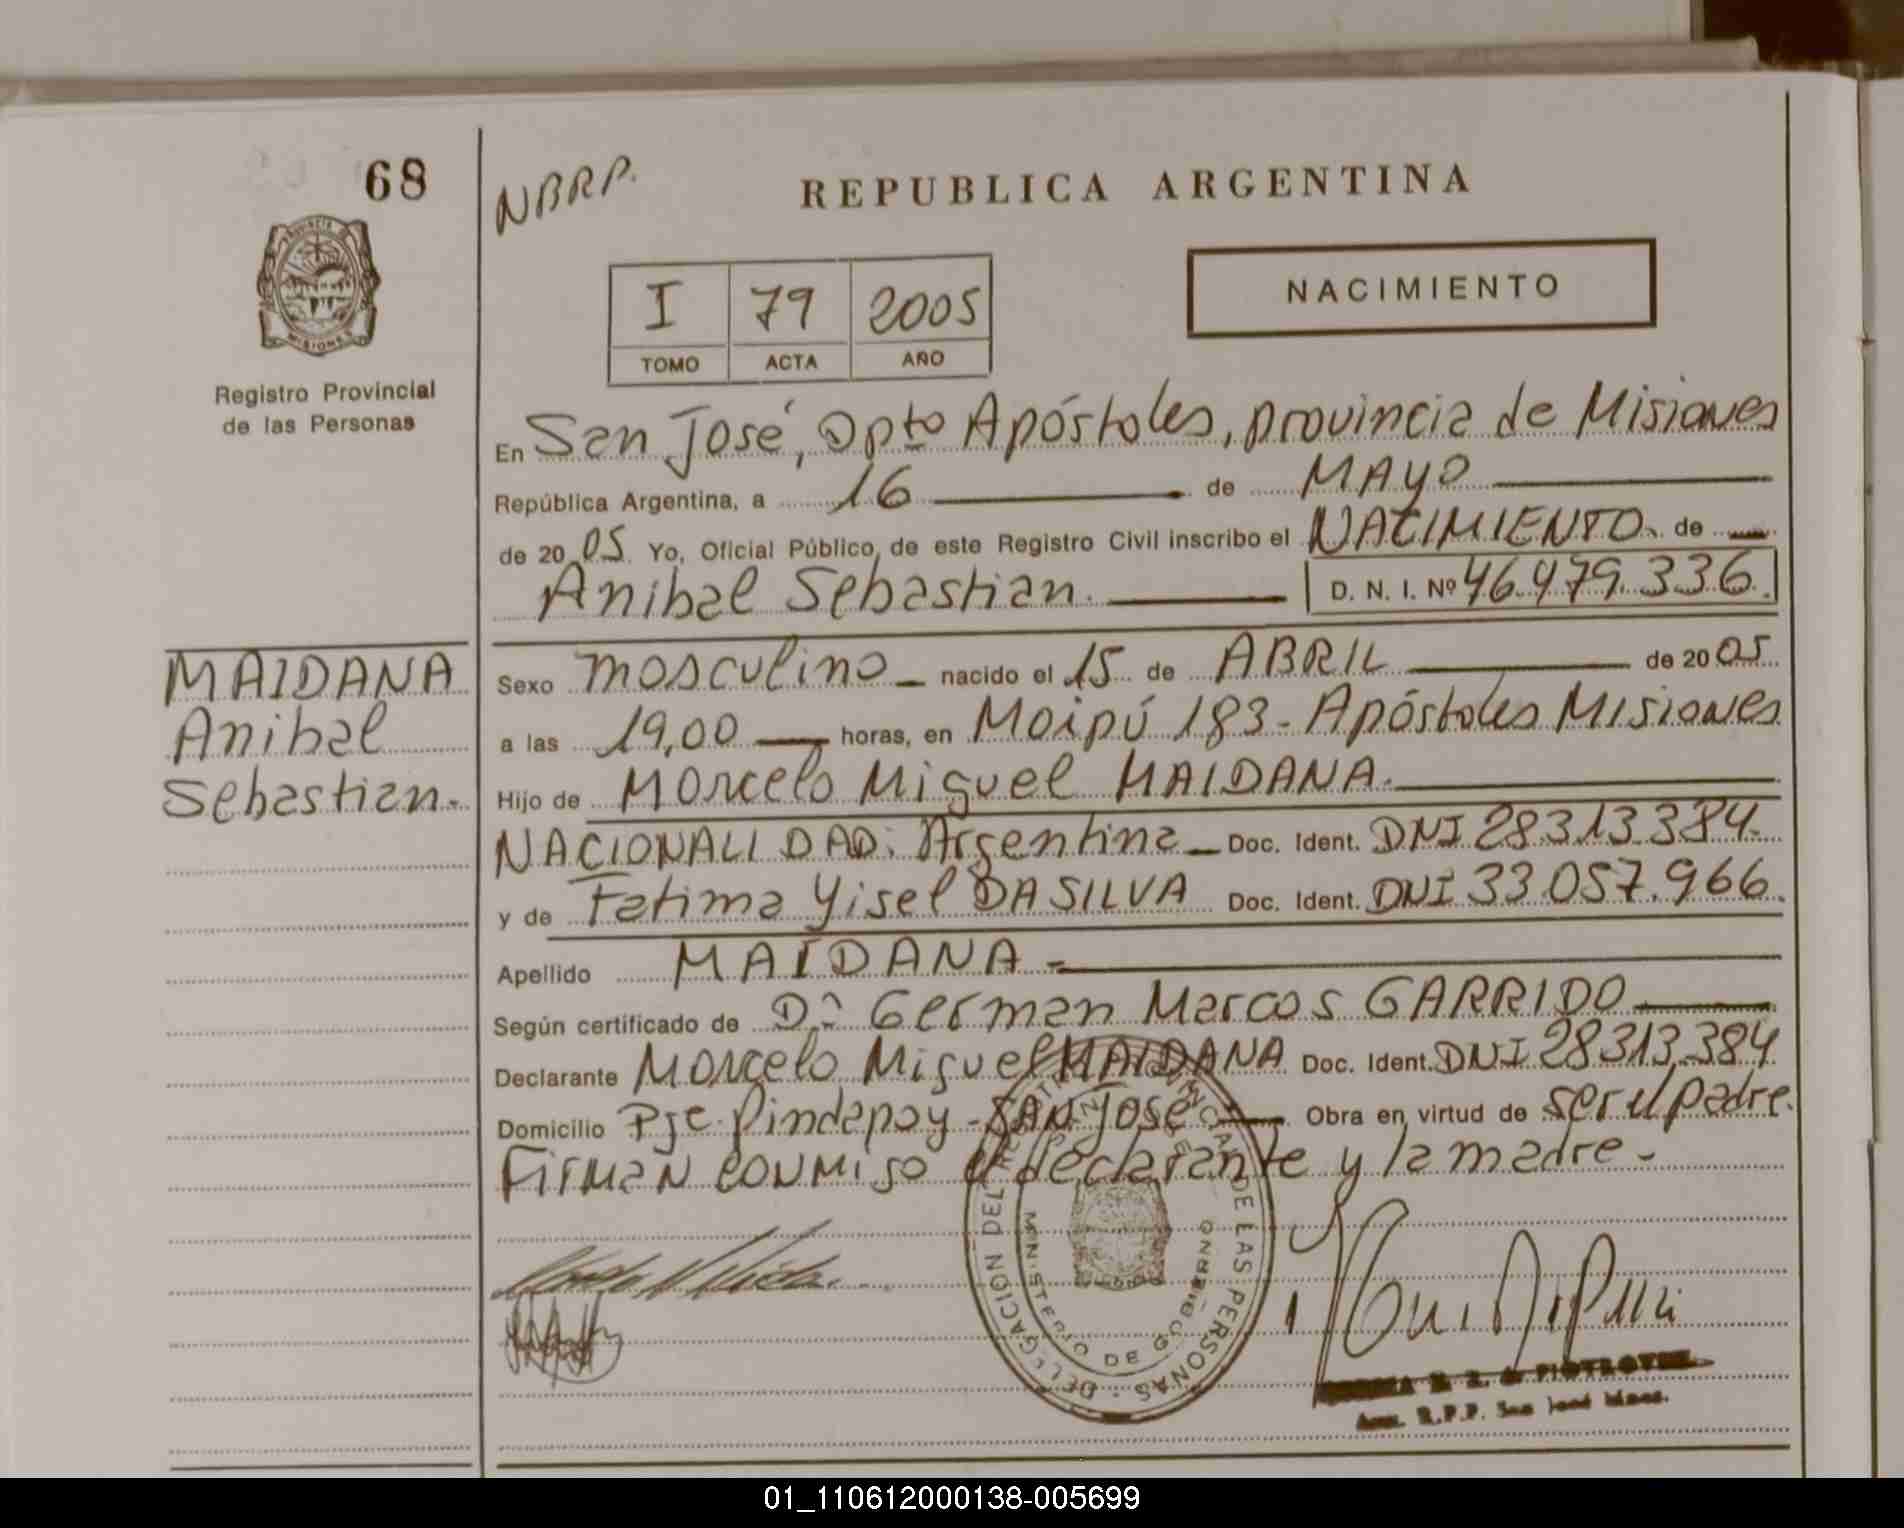 68
NBRP.
REPUBLICA ARGENTINA
PROVINCIA D
MISIONES
Registro Provincial
de las Personas
I 79 2005
TOMO ACTA AÑO
NACIMIENTO
En San José, Dpto Apóstoles, provincia de Misiones
República Argentina, a 16 de MAYO
de 2005 Yo, Oficial Público, de este Registro Civil inscribo el NACIMIENTO de
Anibal Sebastian. D. N. I. Nº 46.479.336.
MAIDANA
Anibal
Sebastian.-
Sexo masculino nacido el 15 de ABRIL de 2005
a las 19,00 horas, en Maipú 183 - Apóstoles Misiones
Hijo de Marcelo Miguel MAIDANA.
NACIONALIDAD: Argentina Doc. Ident. DNI 28.313.384.
y de Fatima Yisel DA SILVA Doc. Ident. DNI 33.057.966.
Apellido MAIDANA -
Según certificado de Dr. German Marcos GARRIDO
Declarante Marcelo Miguel MAIDANA Doc. Ident. DNI 28.313.384
Domicilio Pje. Pindapoy - SAN José Obra en virtud de ser el padre.
Firman conmigo el declarante y la madre.-
DELEGACION DEL REGISTRO PROVINCIAL DE LAS PERSONAS
MINISTERIO DE GOBIERNO
R.P.P. San José Mnes.
01_110612000138-005699